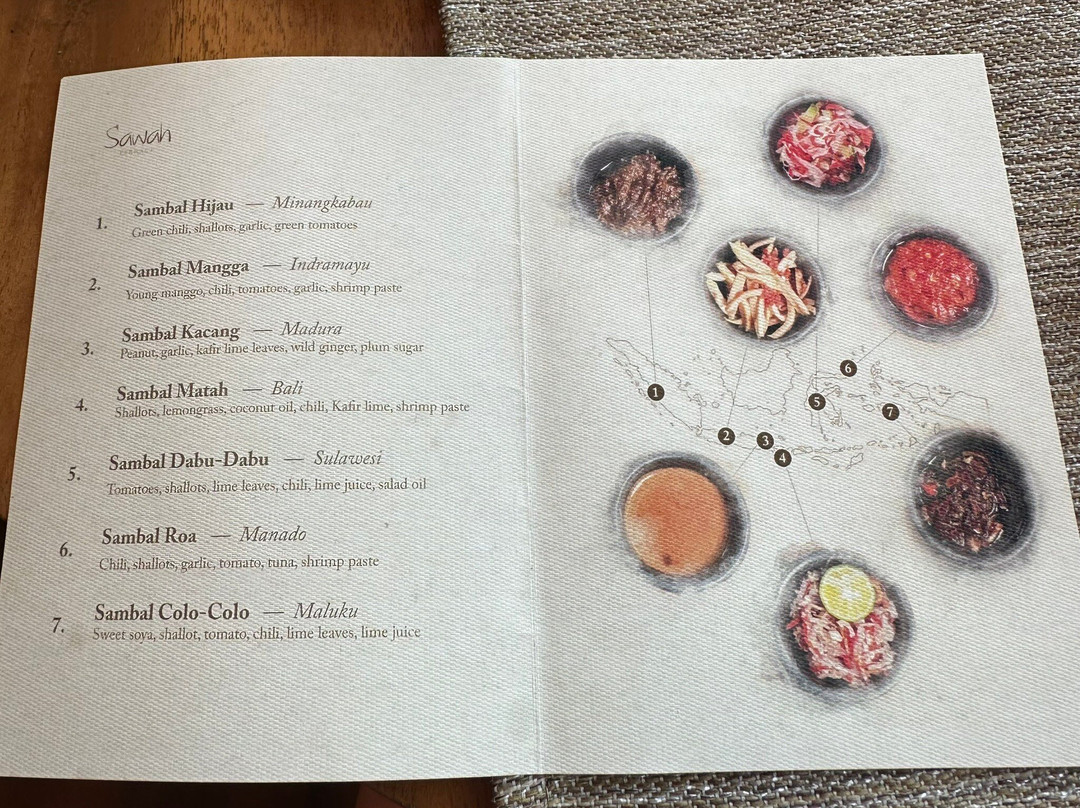 Sawah
TERRACE
1. Sambal Hijau — Minangkabau
Green chili, shallots, garlic, green tomatoes
2. Sambal Mangga — Indramayu
Young manggo, chili, tomatoes, garlic, shrimp paste
3. Sambal Kacang — Madura
Peanut, garlic, kafir lime leaves, wild ginger, plum sugar
4. Sambal Matah — Bali
Shallots, lemongrass, coconut oil, chili, Kafir lime, shrimp paste
5. Sambal Dabu-Dabu — Sulawesi
Tomatoes, shallots, lime leaves, chili, lime juice, salad oil
6. Sambal Roa — Manado
Chili, shallots, garlic, tomato, tuna, shrimp paste
7. Sambal Colo-Colo — Maluku
Sweet soya, shallot, tomato, chili, lime leaves, lime juice
6
1
5
7
2
3
4